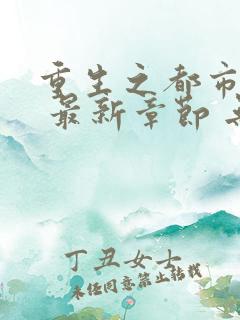 重生之都市
最新章节
丁丑女士
未经同意禁止转载